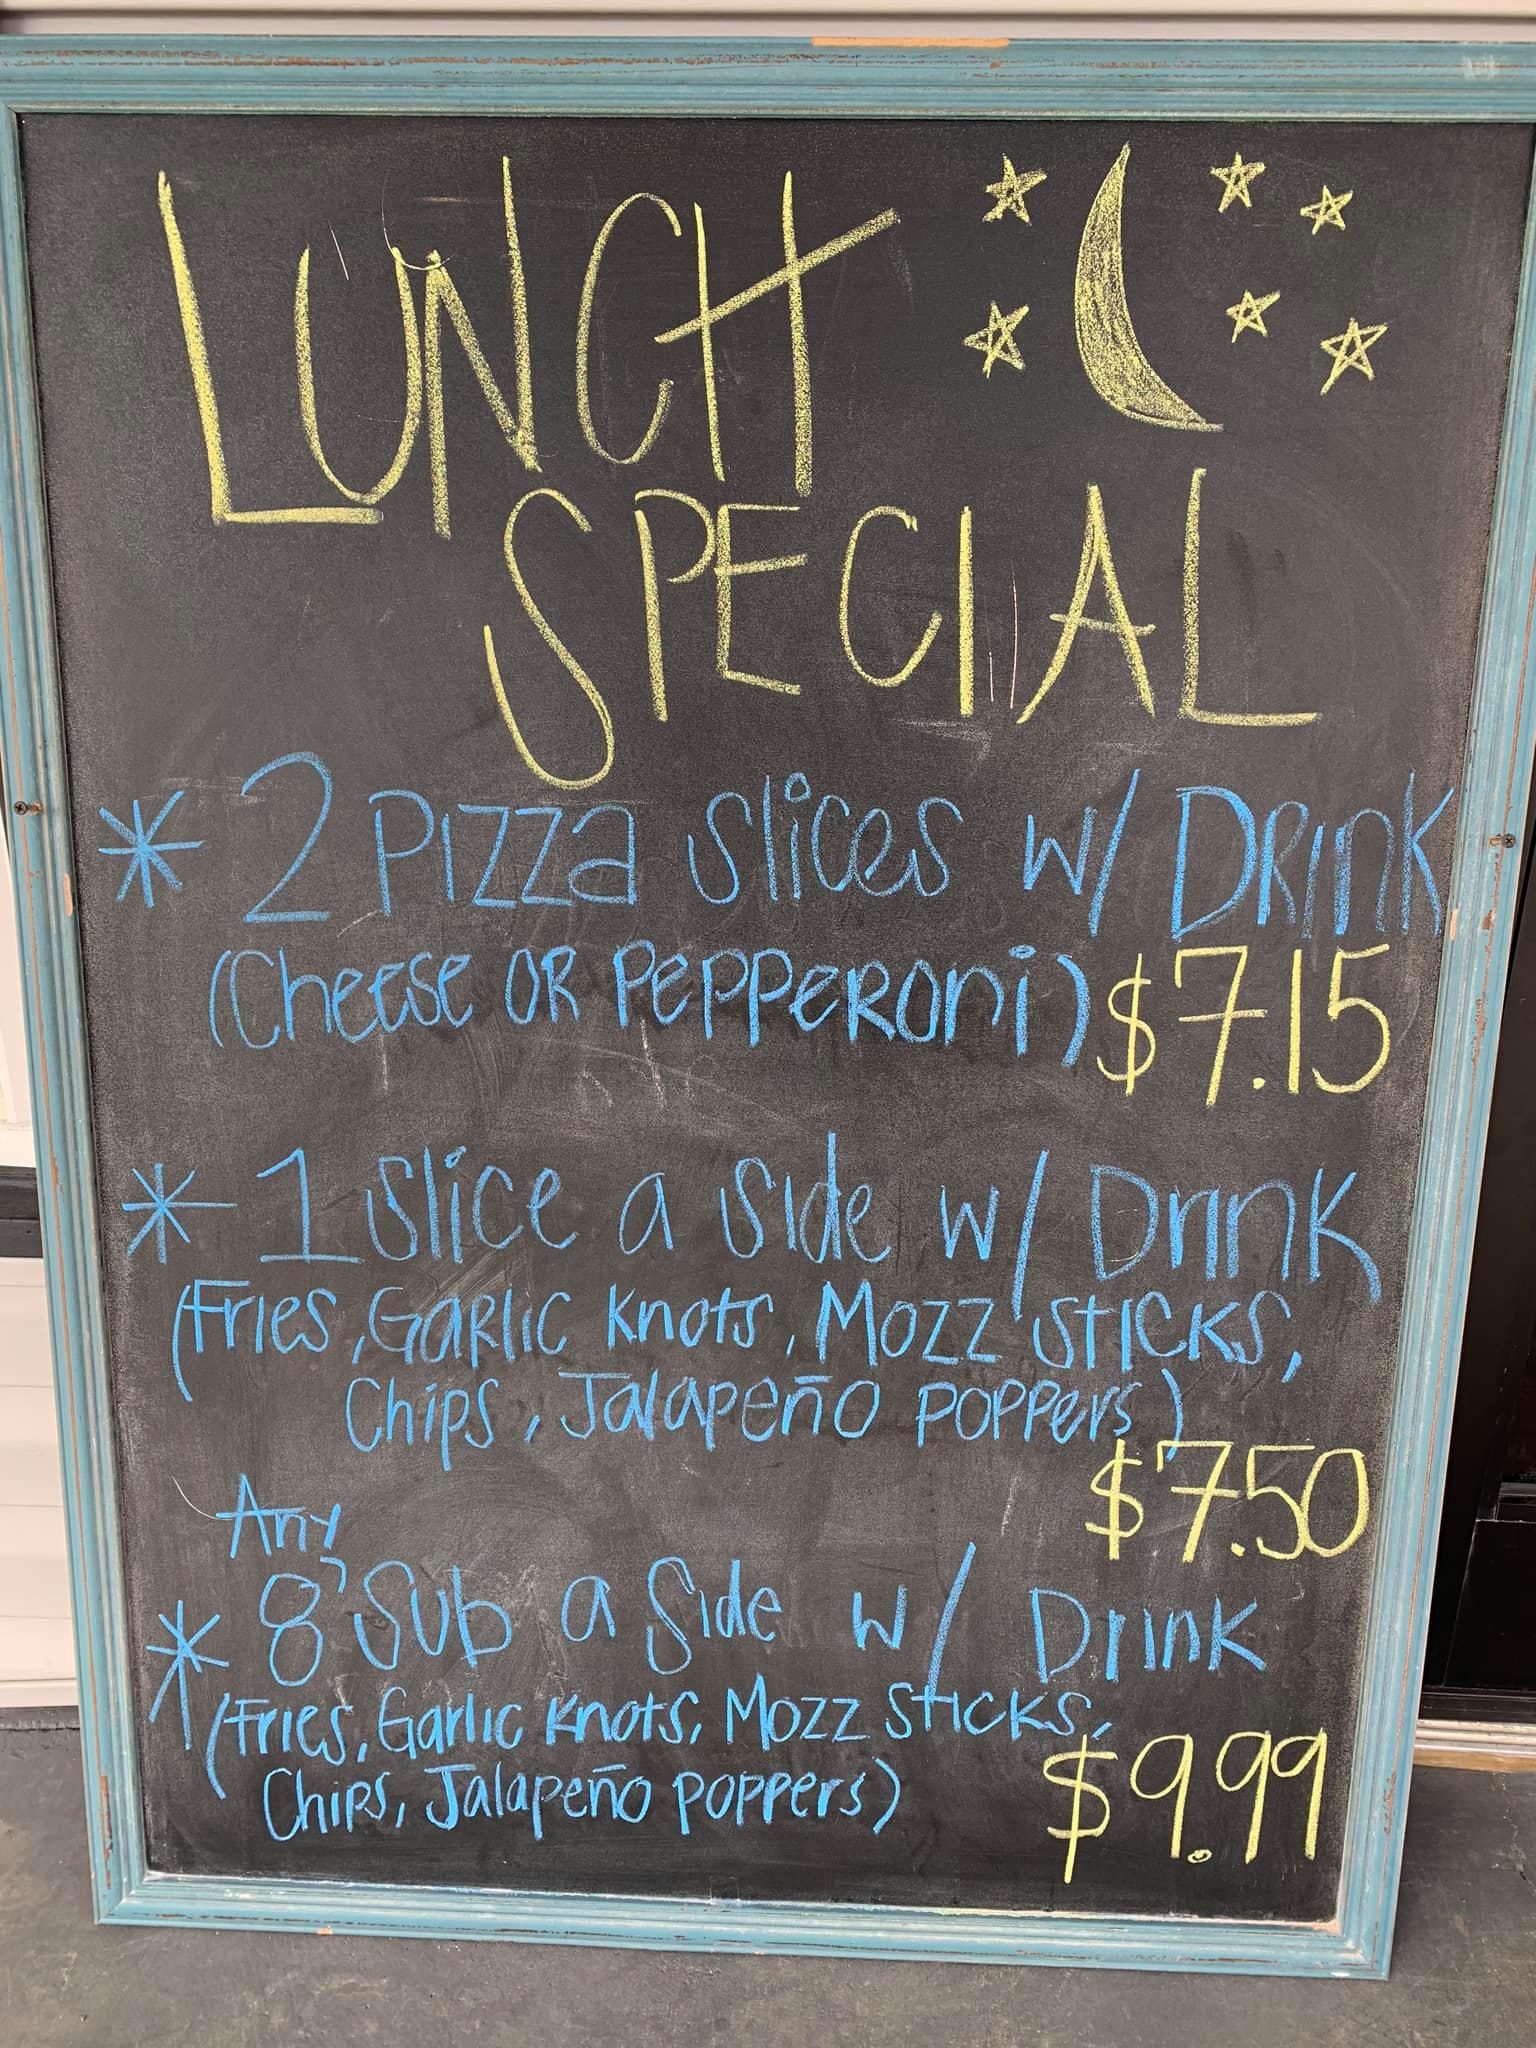 LUNCH
SPECIAL
* 2 Pizza Slices w/ DRink
(Cheese OR PEPPERoni) $7.15
* 1 Slice a Side w/ Drink
(Fries, GaRlic Knots, Mozz Sticks,
Chips, Jalapeño Poppers)
$7.50
Any
* 8" Sub a Side w/ Drink
(Fries, Garlic Knots, Mozz Sticks,
Chips, Jalapeño Poppers) $9.99